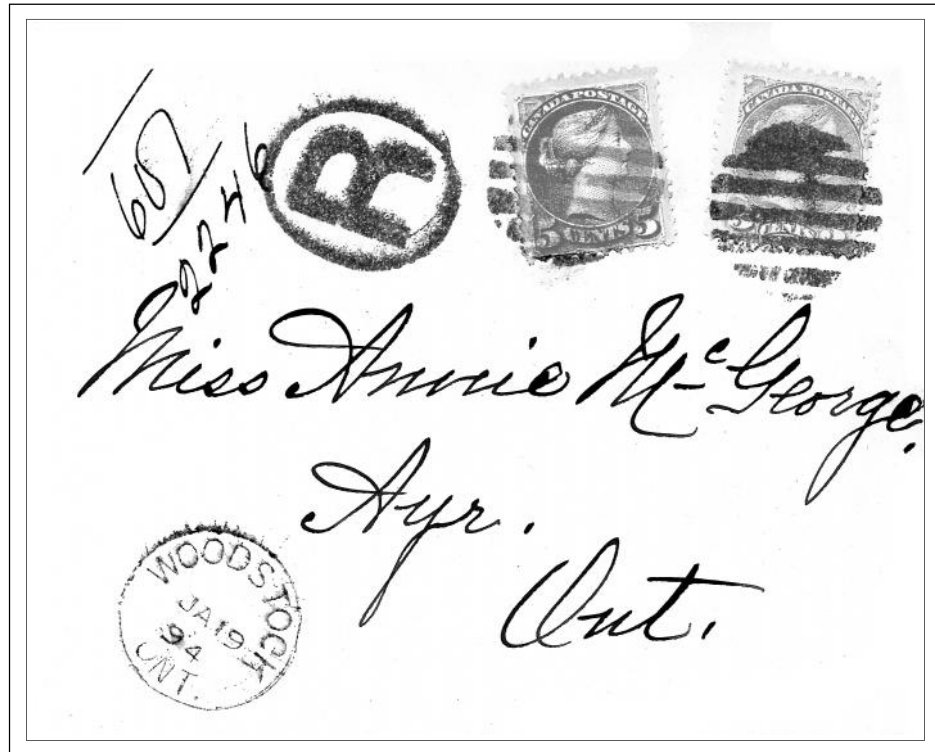 687
2246
R
CANADA POSTAGE
5 CENTS 5
CANADA POSTAGE
Miss Annie McGeorge.
Ayr.
Ont.
WOODSTOCK
JA 19
94
ONT.